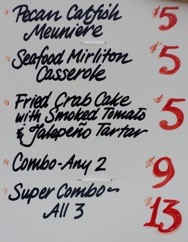 Pecan Catfish $5
Meuniere
Seafood Mirliton $5
Casserole
Fried Crab Cake
with Smoked Tomato $5
& Jalapeño Tartar
Combo-Any 2 $9
Super Combo-
All 3 $13